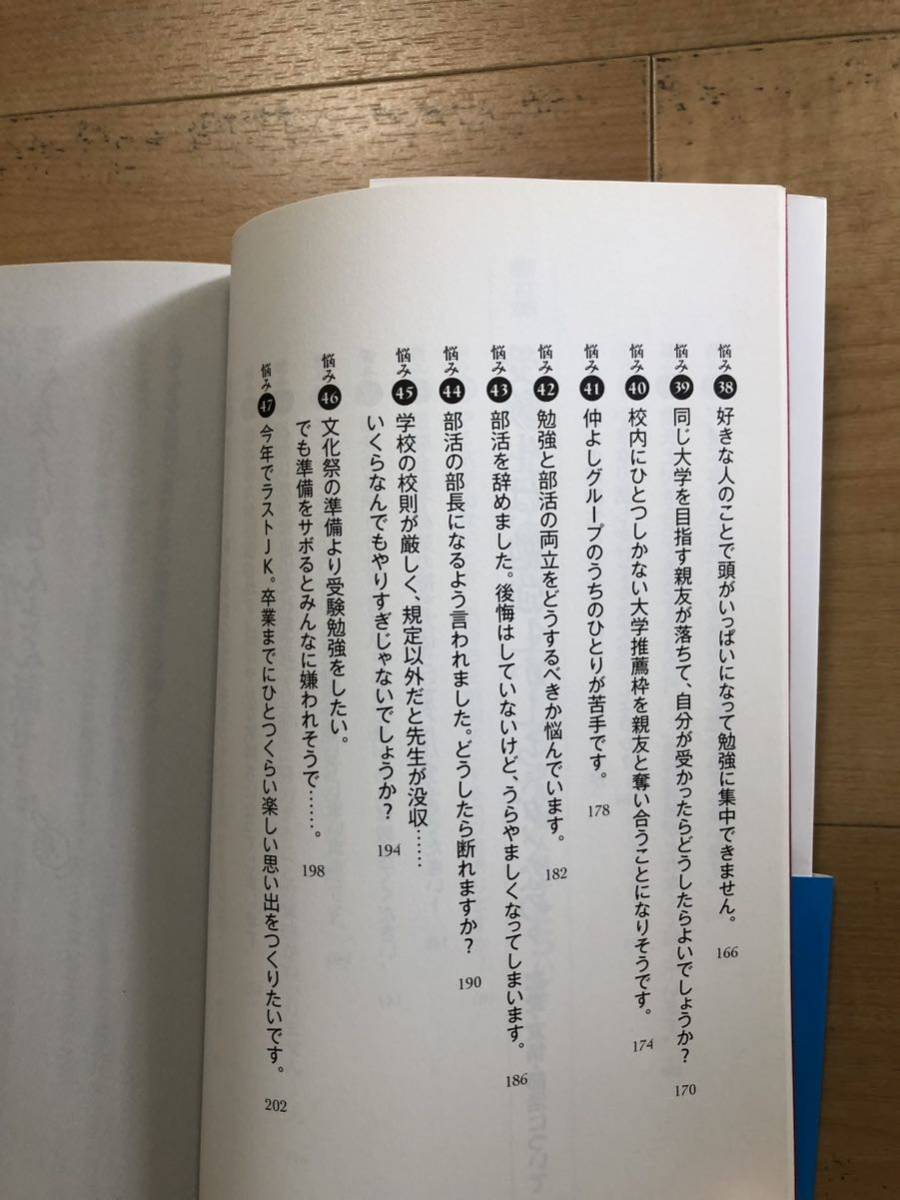 悩み38 好きな人のことで頭がいっぱいになって勉強に集中できません。 166
悩み39 同じ大学を目指す親友が落ちて、自分が受かったらどうしたらよいでしょうか？ 170
悩み40 校内にひとつしかない大学推薦枠を親友と奪い合うことになりそうです。 174
悩み41 仲よしグループのうちのひとりが苦手です。 178
悩み42 勉強と部活の両立をどうするべきか悩んでいます。 182
悩み43 部活を辞めました。後悔はしていないけど、うらやましくなってしまいます。 186
悩み44 部活の部長になるよう言われました。どうしたら断れますか？ 190
悩み45 学校の校則が厳しく、規定以外だと先生が没収……
いくらなんでもやりすぎじゃないでしょうか？ 194
悩み46 文化祭の準備より受験勉強をしたい。
でも準備をサボるとみんなに嫌われそうで……。 198
悩み47 今年でラストJK。卒業までにひとつくらい楽しい思い出をつくりたいです。 202